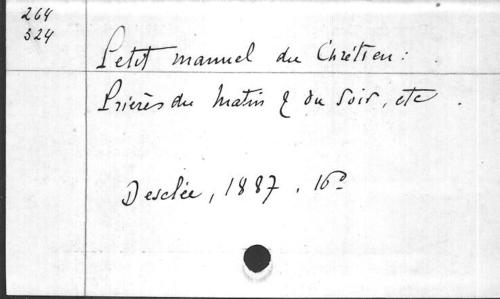 264
324
Petit manuel du Chrétien :
Prières du Matin & du Soir, etc .
Desclée, 1887 . 16º